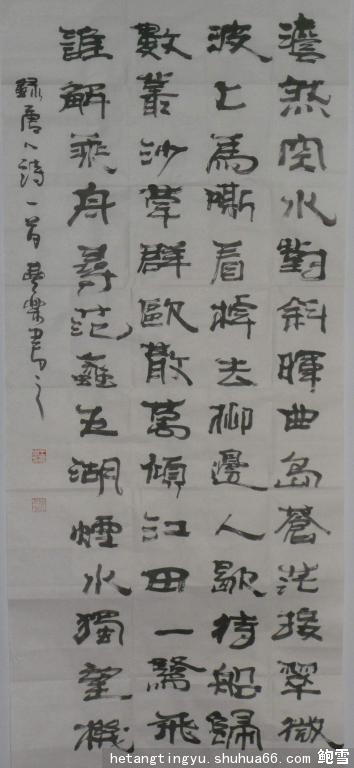 澹然空水對斜暉曲島蒼茫接翠微
波上馬嘶看棹去柳邊人歇待船歸
數叢沙草群歐散萬頃江田一鷺飛
誰解乘舟尋范蠡五湖煙水獨望機
錄唐人詩一首 書之
hetangtingyu.shuhua66.com/鲍雪